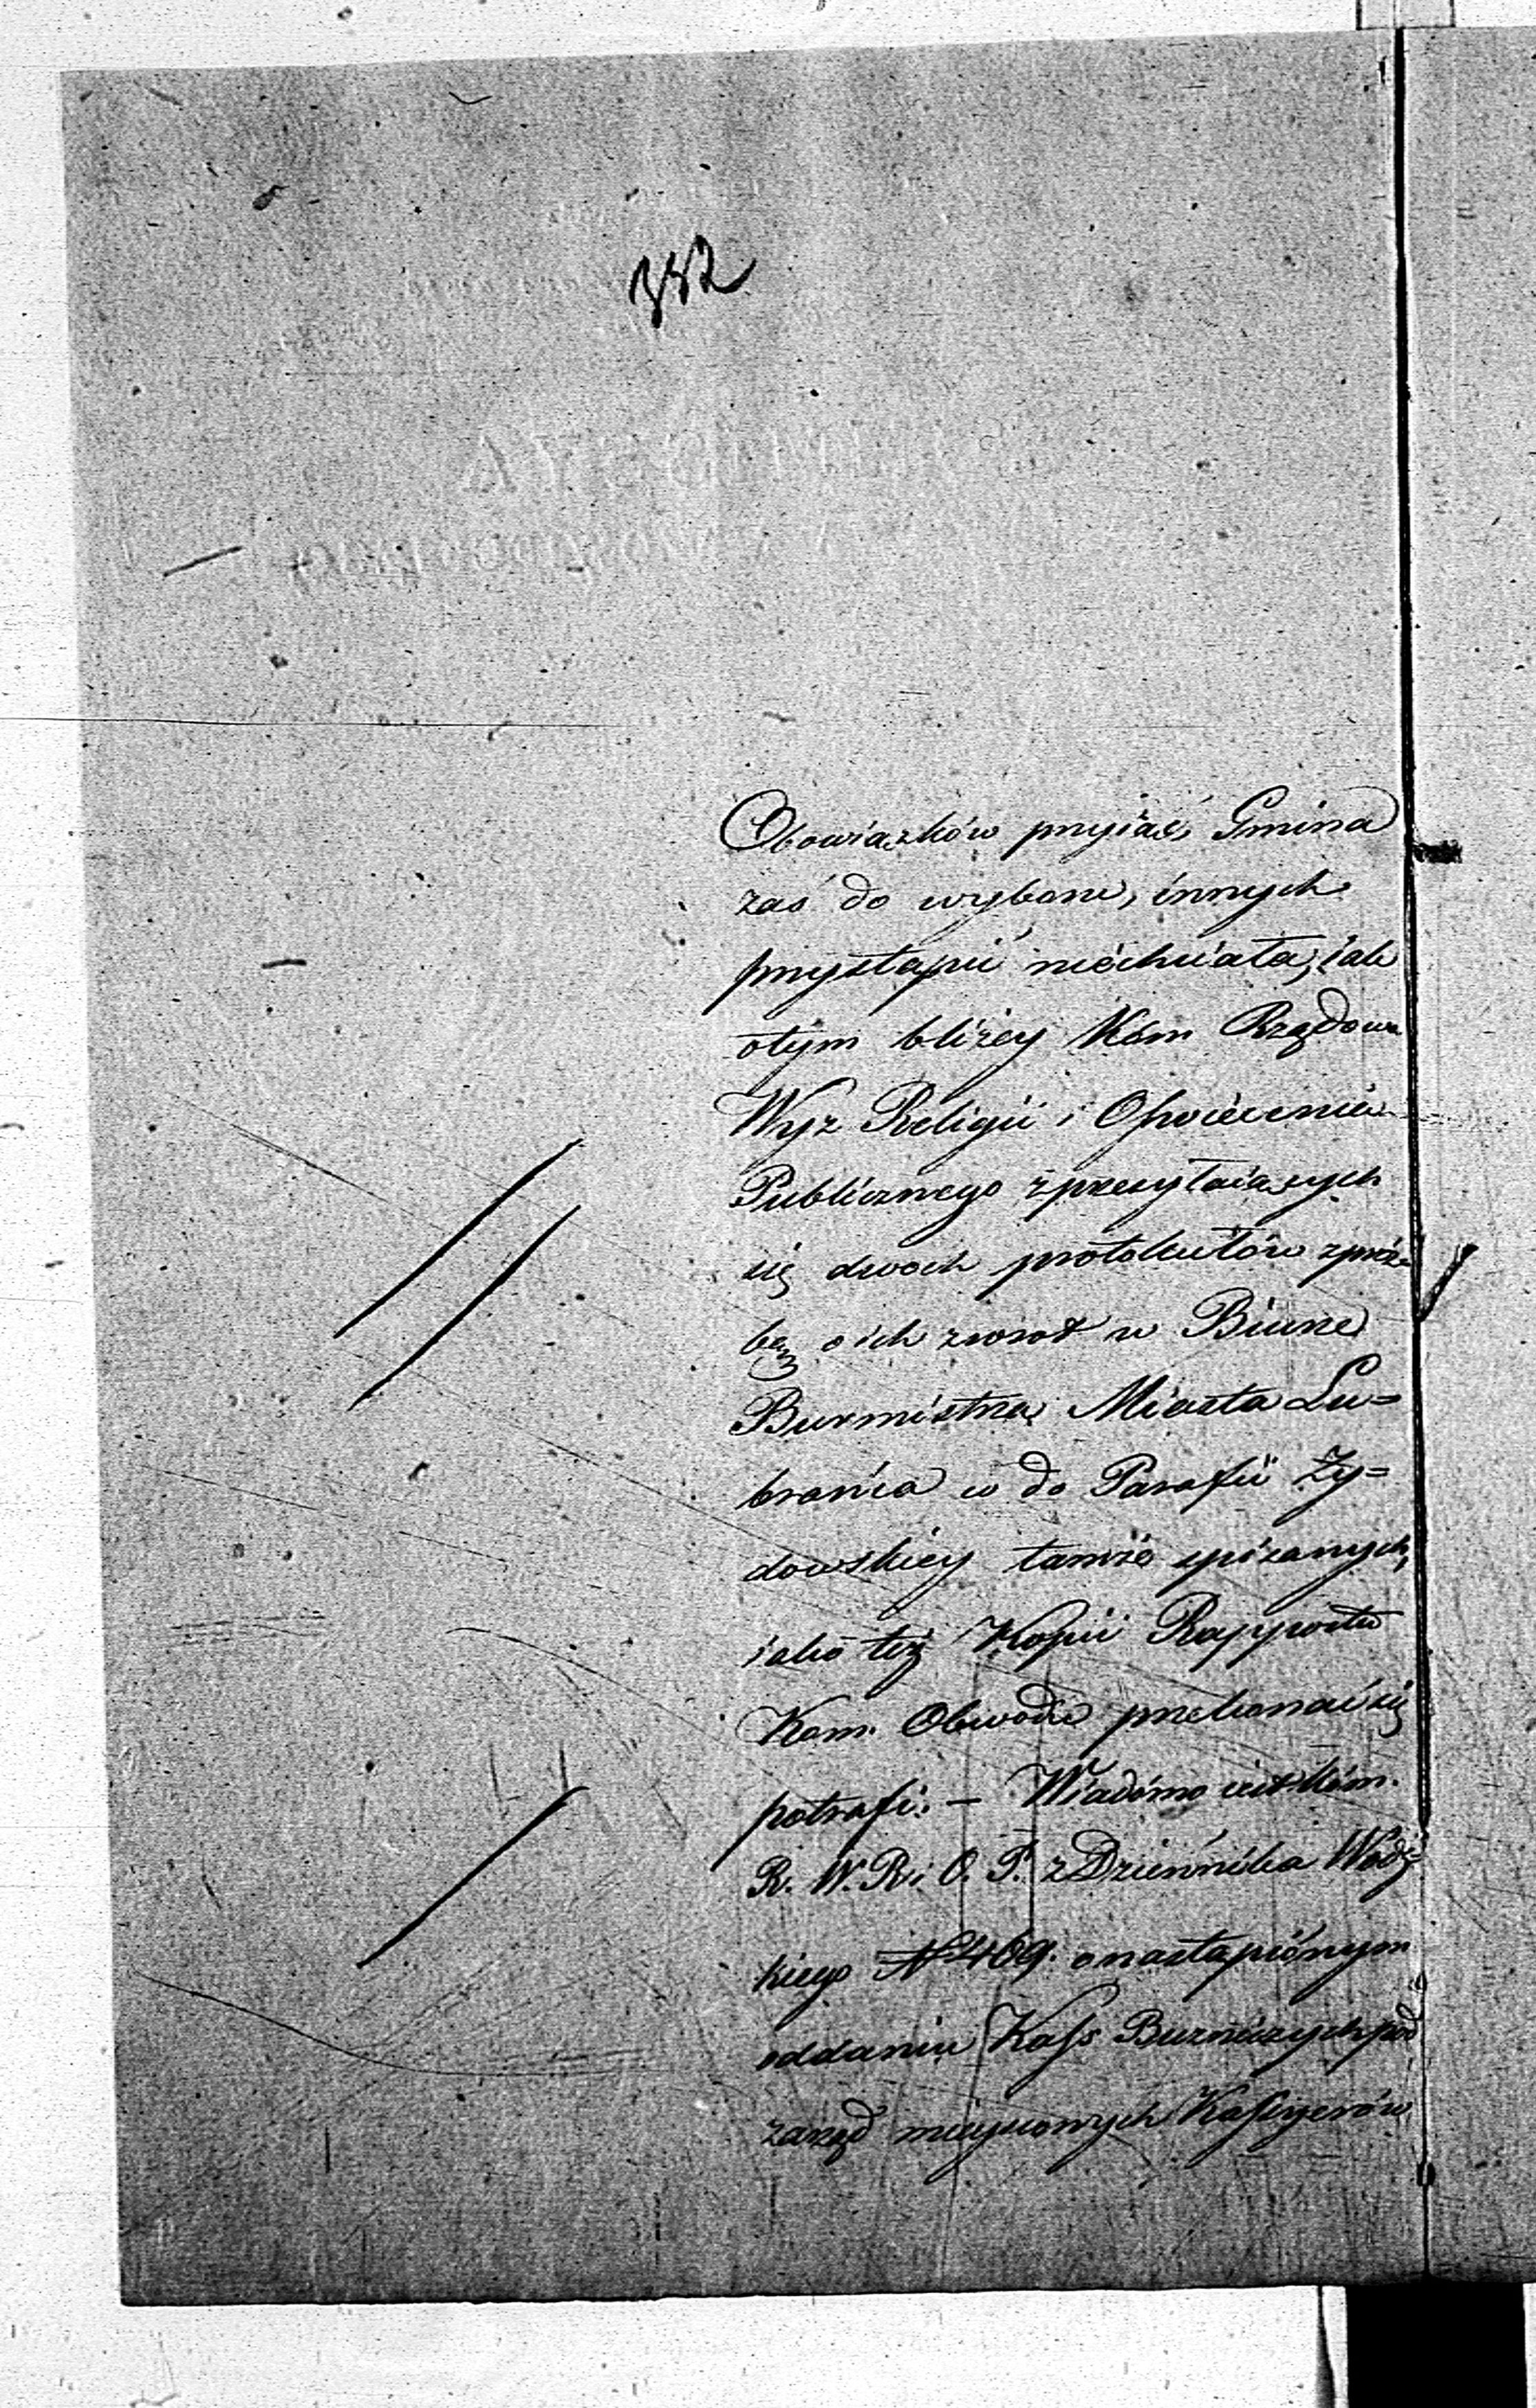 382
Obowiązków przyiąć, Gmina
zaś do wyboru innych
przystąpić niechciała, iak
otym bliżey Kom Rządowa
Wyz Religii i Oświecenia
Publicznego zprzesyłaiących
się dwoch protokułów zproź-
bą o ich zwrot w Biurze
Burmistrza Miasta Lu=
brańca co do Parafii Ży=
dowskiey tamże spisanych,
iako też Kopii Rapportu
Kom. Obwodu przekonać się
potrafi. — Wiadomo iest Kom.
R. W. R. i O. P. z Dziennika Wódz-
kiego N 469. o nastąpionym
oddaniu Kass Bużniczych pod
zarząd mieyscowych Kassyerów